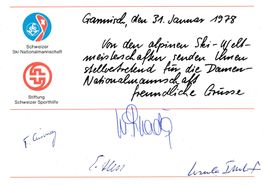 Garmisch, den 31. Januar 1978
Von den alpinen Ski-Welt-
meisterschaften senden Ihnen
stellvertretend für die Damen-
Nationalmannschaft
freundliche Grüsse
Schweizer
Ski Nationalmannschaft
Stiftung
Schweizer Sporthilfe
E. Hess